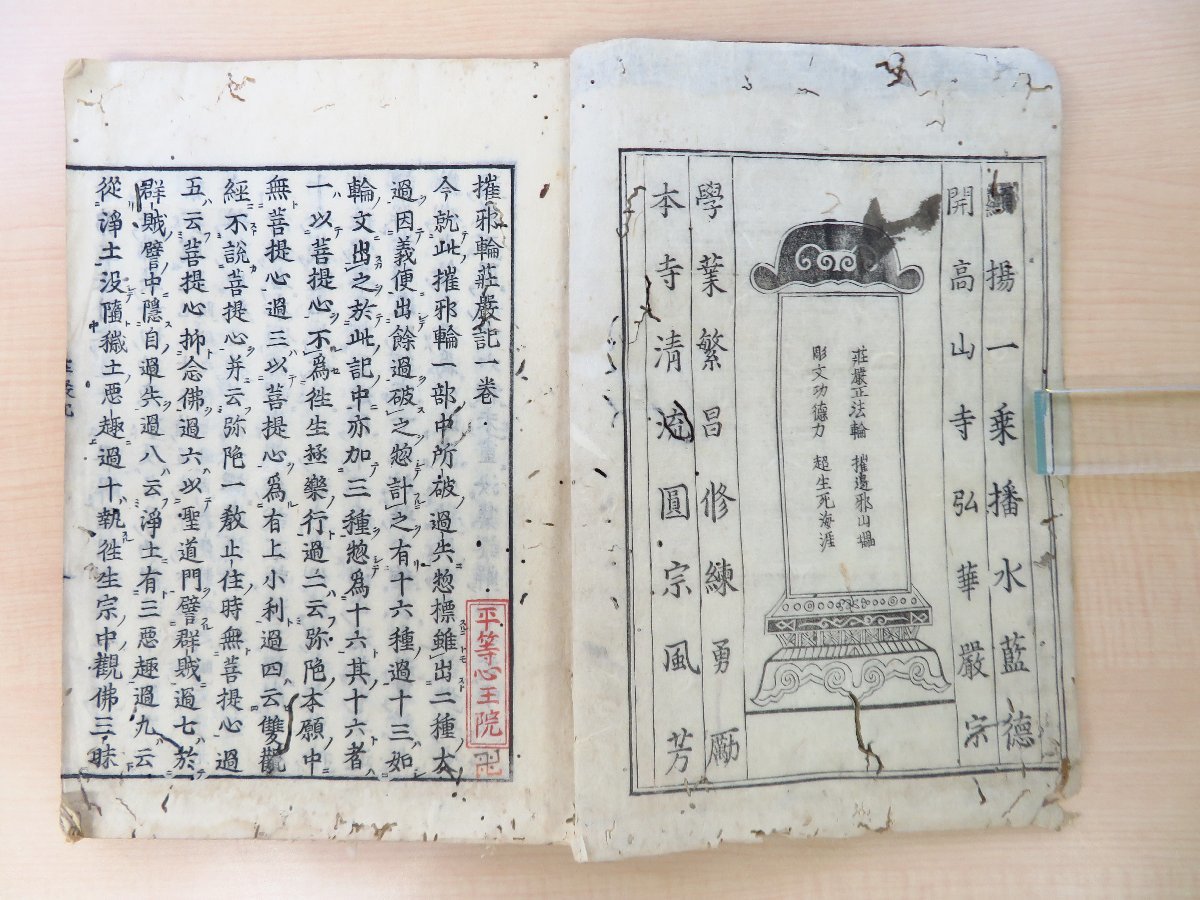 揚一乗播水藍德
開高山寺弘華嚴宗
莊嚴正法輪 摧邊邪山㠎
彫文功德力 超生死海涯
學葉繁昌修練勇勵
本寺清流圓宗風芳
摧邪輪莊嚴記一卷
今就此摧邪輪一部中所破過失惣標雖出二種大
過因義便出餘過破之惣計之有十六種過十三如
輪文出之於此記中亦加三種惣爲十六其十六者
一以菩提心不爲徃生極樂行過二云弥陁本願中
無菩提心過三以菩提心爲有上小利過四云雙觀
經不說菩提心并云弥陁一教止住時無菩提心過
五云菩提心抑念佛過六以聖道門譬群賊過七於
群賊譬中隱自過失過八云淨土有三惡趣過九云
從淨土没墮穢土惡趣過十執徃生宗中觀佛三昧
平等心王院
卍